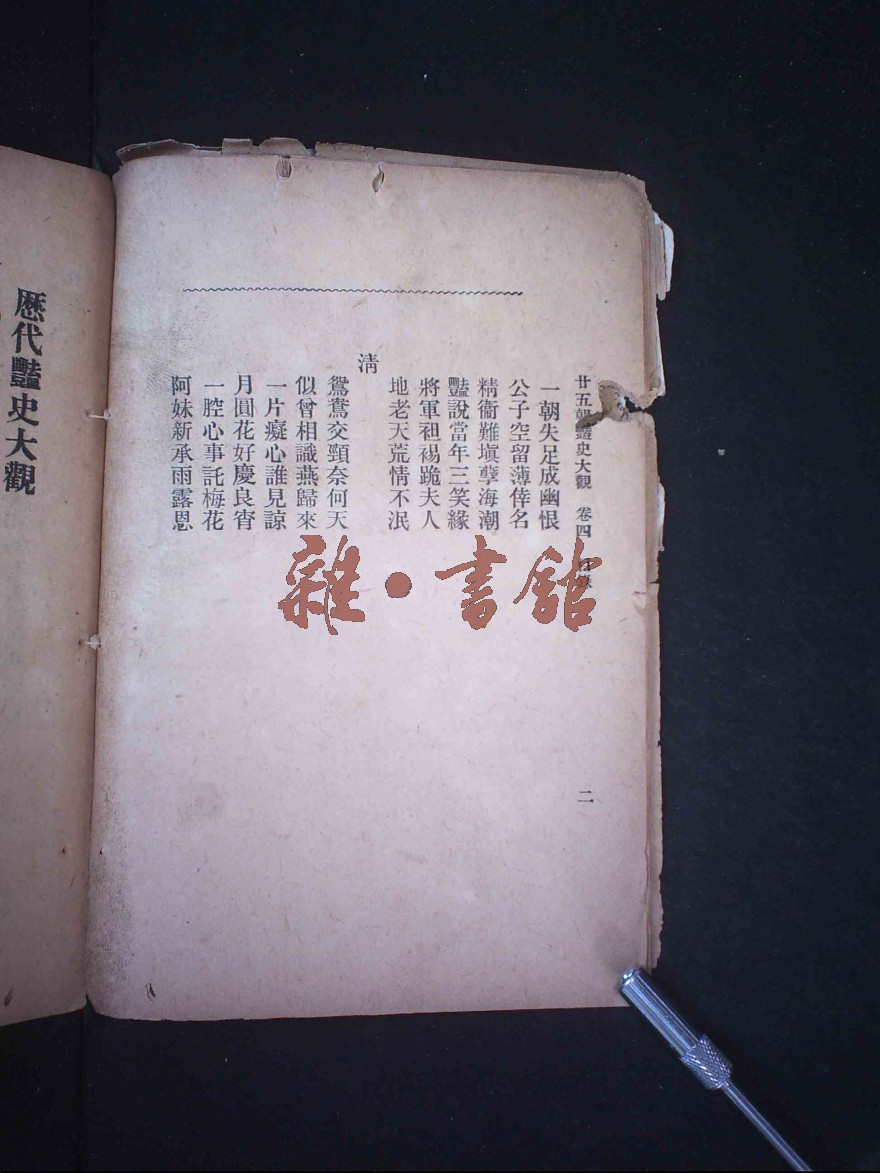 廿五朝豔史大觀 卷四 目錄
二
一朝失足成幽恨
公子空留薄倖名
精衞難塡孽海潮
豔說當年三笑緣
將軍袒裼跪夫人
地老天荒情不泯
清
鴛鴦交頸奈何天
似曾相識燕歸來
一片癡心誰見諒
月圓花好慶良宵
一腔心事託梅花
阿妹新承雨露恩
歷代豔史大觀
雜·書館